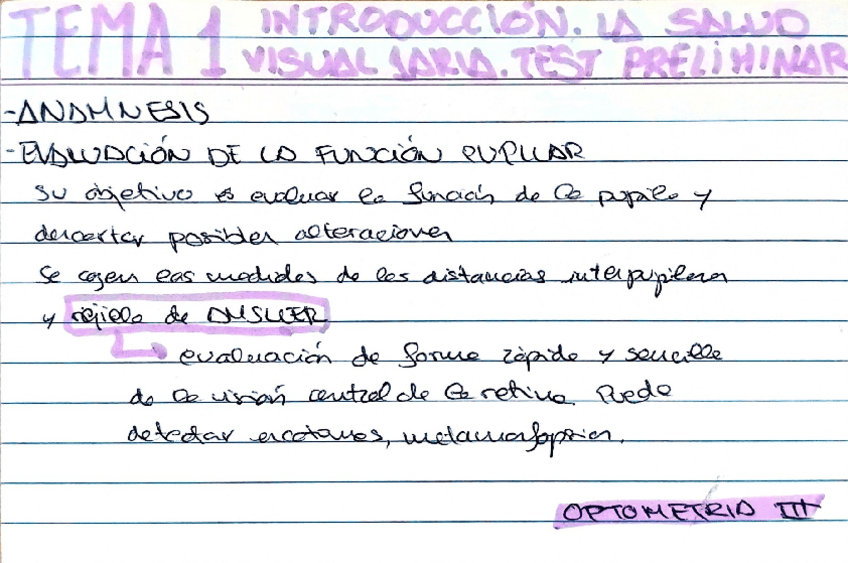 TEMA 1 INTRODUCCIÓN. LA SALUD
VISUAL 1ARIA. TEST PRELIMINAR
-ANAMNESIS
-EVALUACIÓN DE LA FUNCIÓN PUPILAR
Su objetivo es evaluar la función de la pupila y
descartar posibles alteraciones
Se cogen las medidas de las distancias interpupilares
y rejilla de AMSLER
evaluación de forma rápida y sencilla
de la visión central de la retina. Puede
detectar escotomas, metamorfopsias.
OPTOMETRÍA III